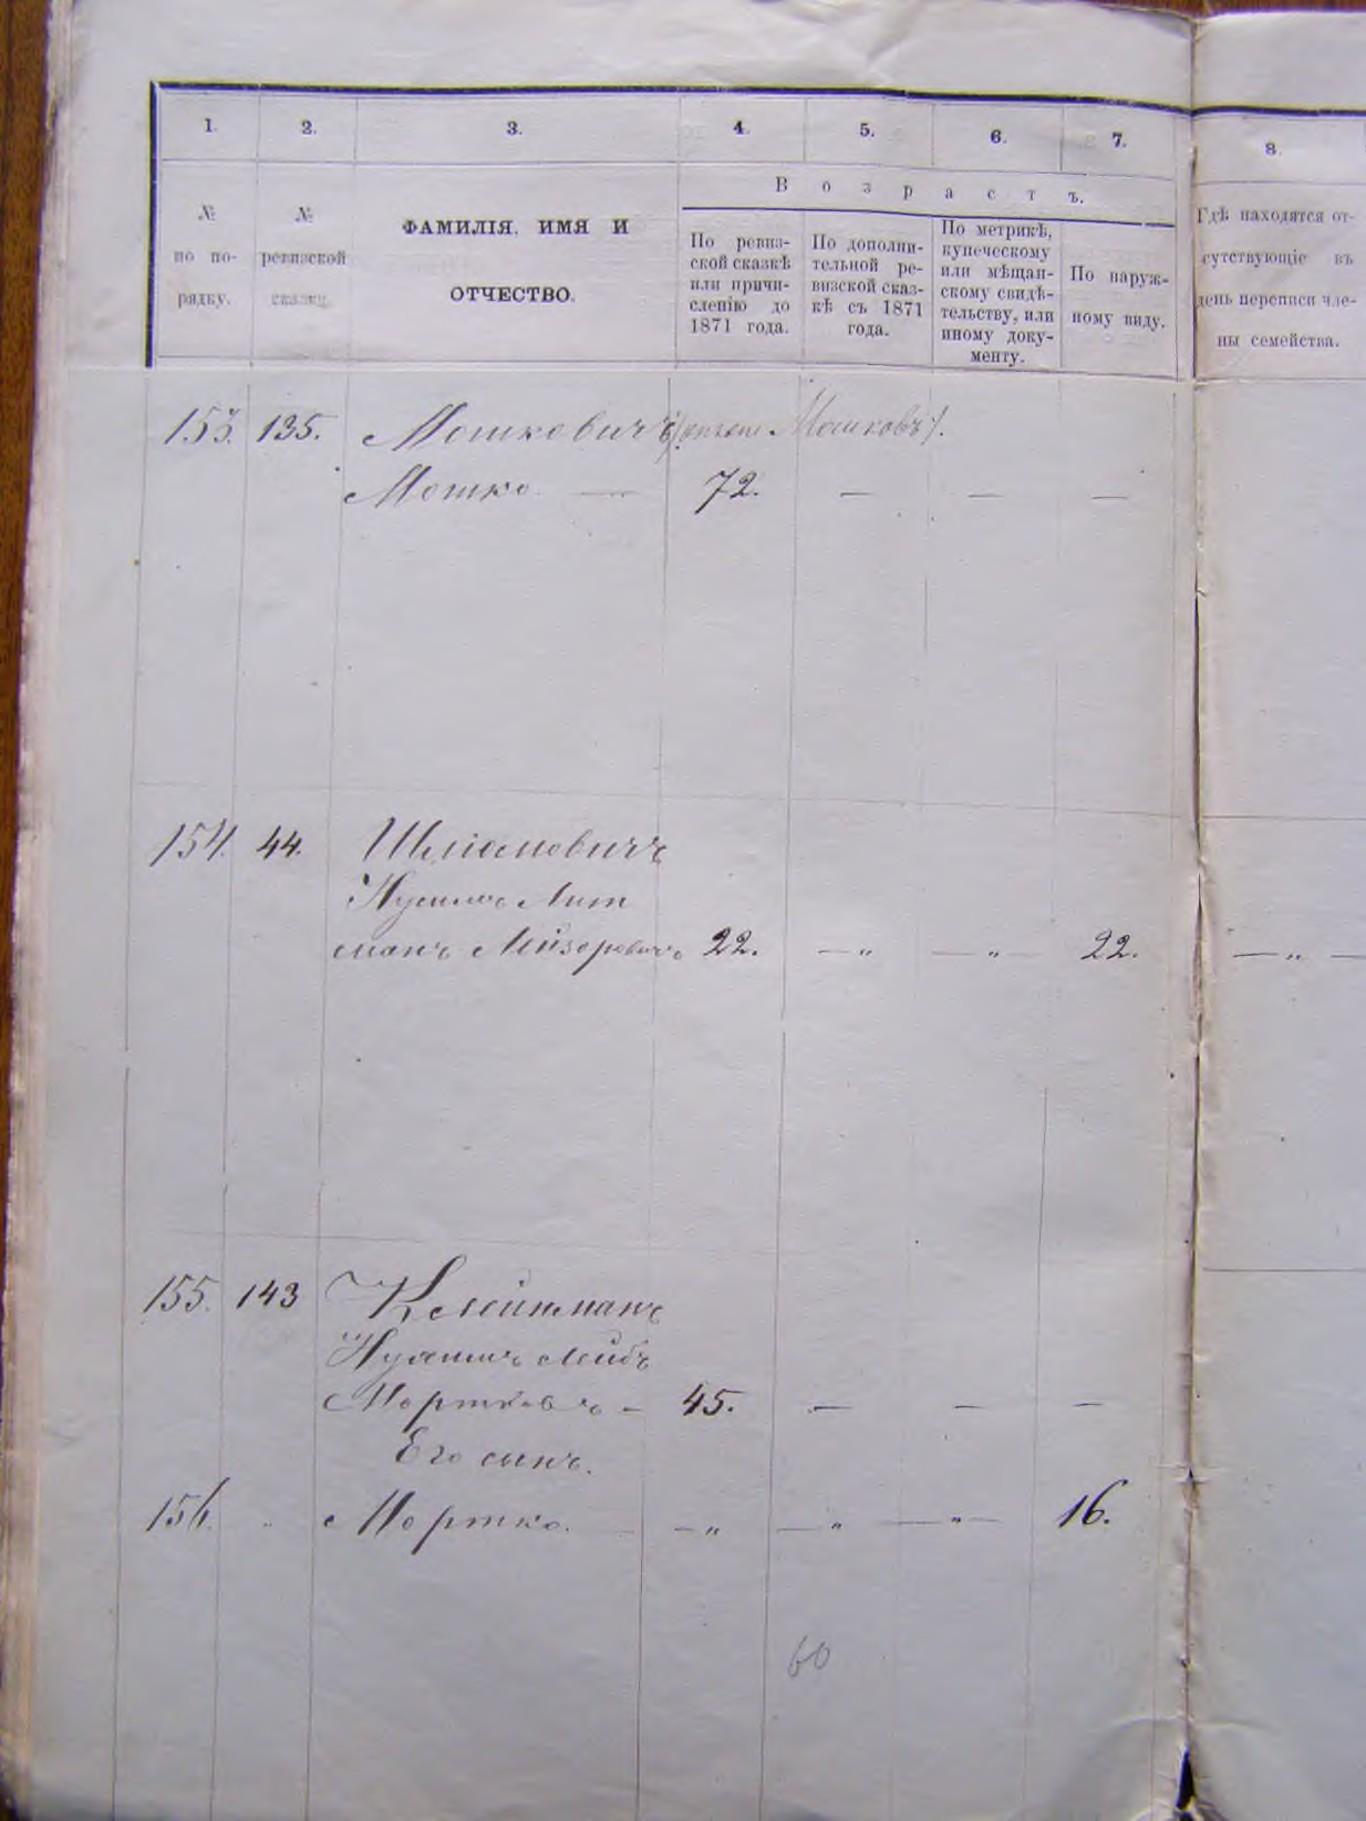 1. 2. 3. 4. 5. 6. 7. 8.
Возрастъ.
№ по по-рядку.
№ ревизской сказки.
ФАМИЛІЯ, ИМЯ И
ОТЧЕСТВО.
По ревиз-
ской сказкѣ
или причи-
сленію до
1871 года.
По дополни-
тельной ре-
визской сказ-
кѣ съ 1871
года.
По метрикѣ,
купеческому
или мѣщан-
скому свидѣ-
тельству, или
иному доку-
менту.
По наруж-
ному виду.
Гдѣ находятся от-
сутствующіе въ
день переписи чле-
ны семейства.
153. 135. Мошковичъ Мошковъ).
Мошко — 72. — — —
154. 44.
Лит
манъ Лейзоровичъ 22. — " — " — 22. — " —
155. 143 Клейтманъ
Лейбъ
Мортковъ — 45. — — —
Его сынъ.
156. " Мортко. — — " — " — " — 16.
60